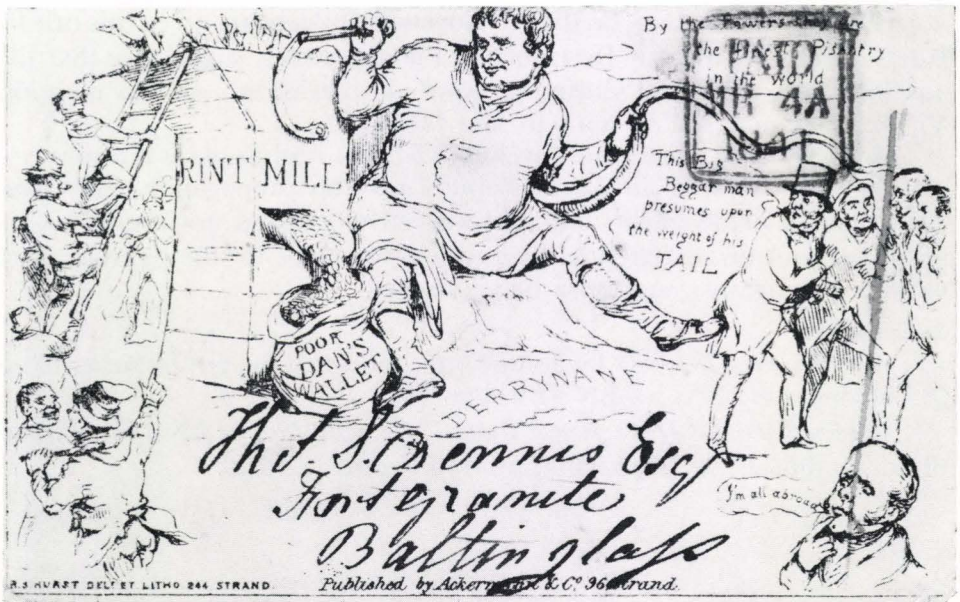 By the Powers they are
the finest Pisantry
in the world
PAID
4A
1841
RINT MILL
This Big
Beggar man
presumes upon
the weight of his
TAIL
POOR
DAN'S
WALLET
DERRYNANE
Thos. S. Dennis Esq
Fortgranite
Baltinglass
I'm all abroad
R.S HURST DELT ET LITHO 244 STRAND.
Published by Ackermann & Co. 96 Strand.